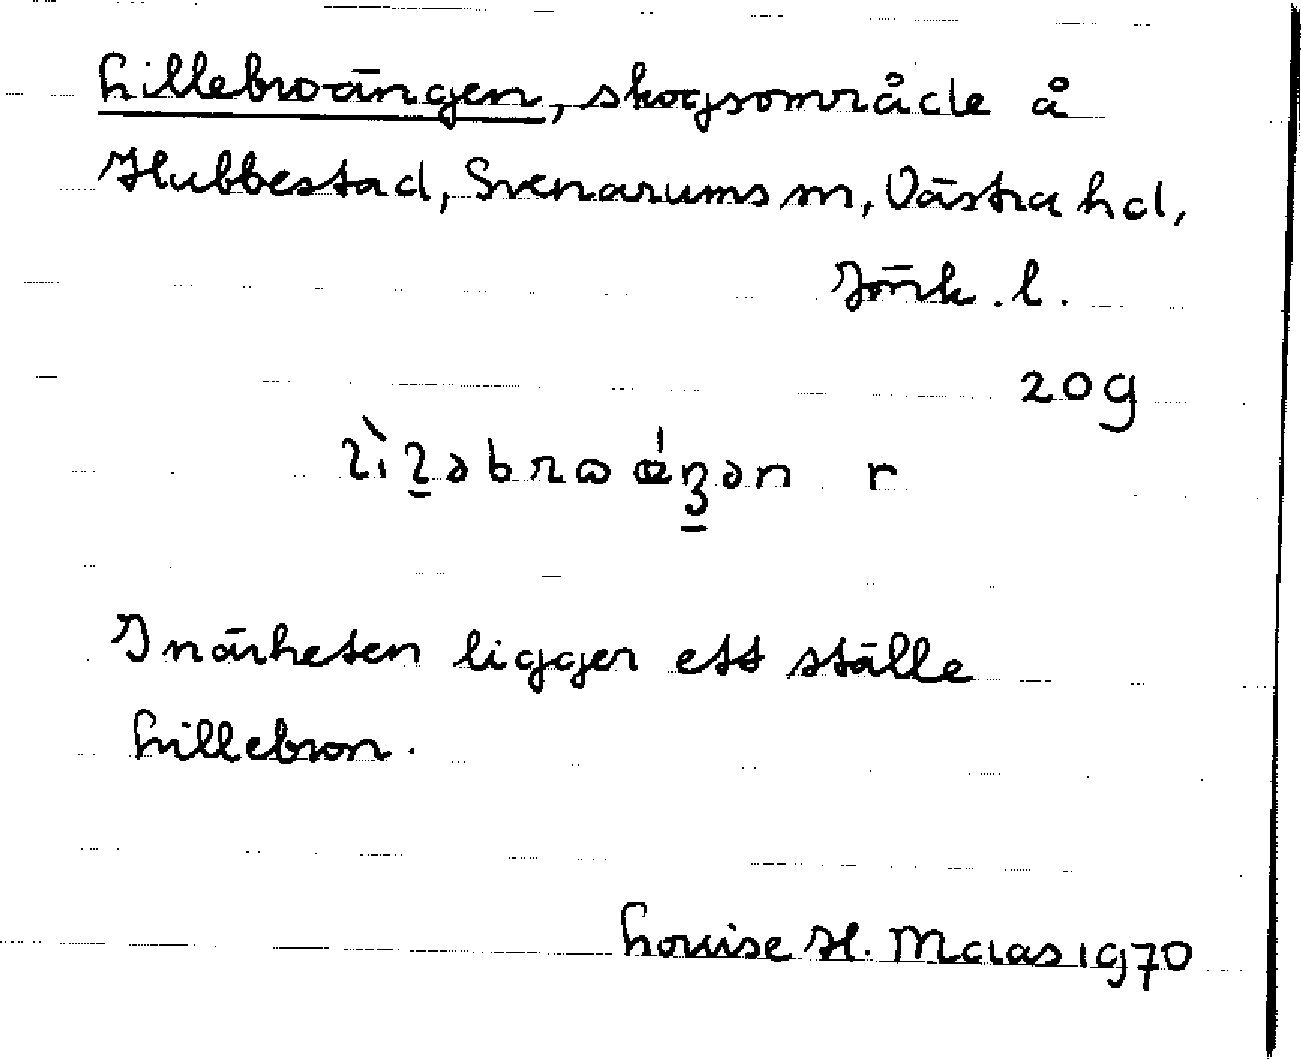 Lillebroängen, skogsområde å
Hubbestad, Svenarums sn, Västra hd,
Jönk. l.
20g
r
I närheten ligger ett ställe
Lillebron.
Louise H. Maas 1970